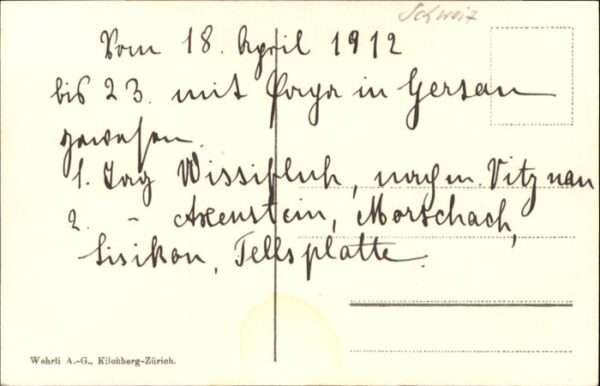 Schweiz
Vom 18. April 1912
bis 23. mit Papa in Gersau
gewesen.
1. Tag Wissifluh, nachm. Vitznau
2. " Axenstein, Morschach,
Sisikon, Tellsplatte.
Wehrli A.-G., Kilchberg-Zürich.